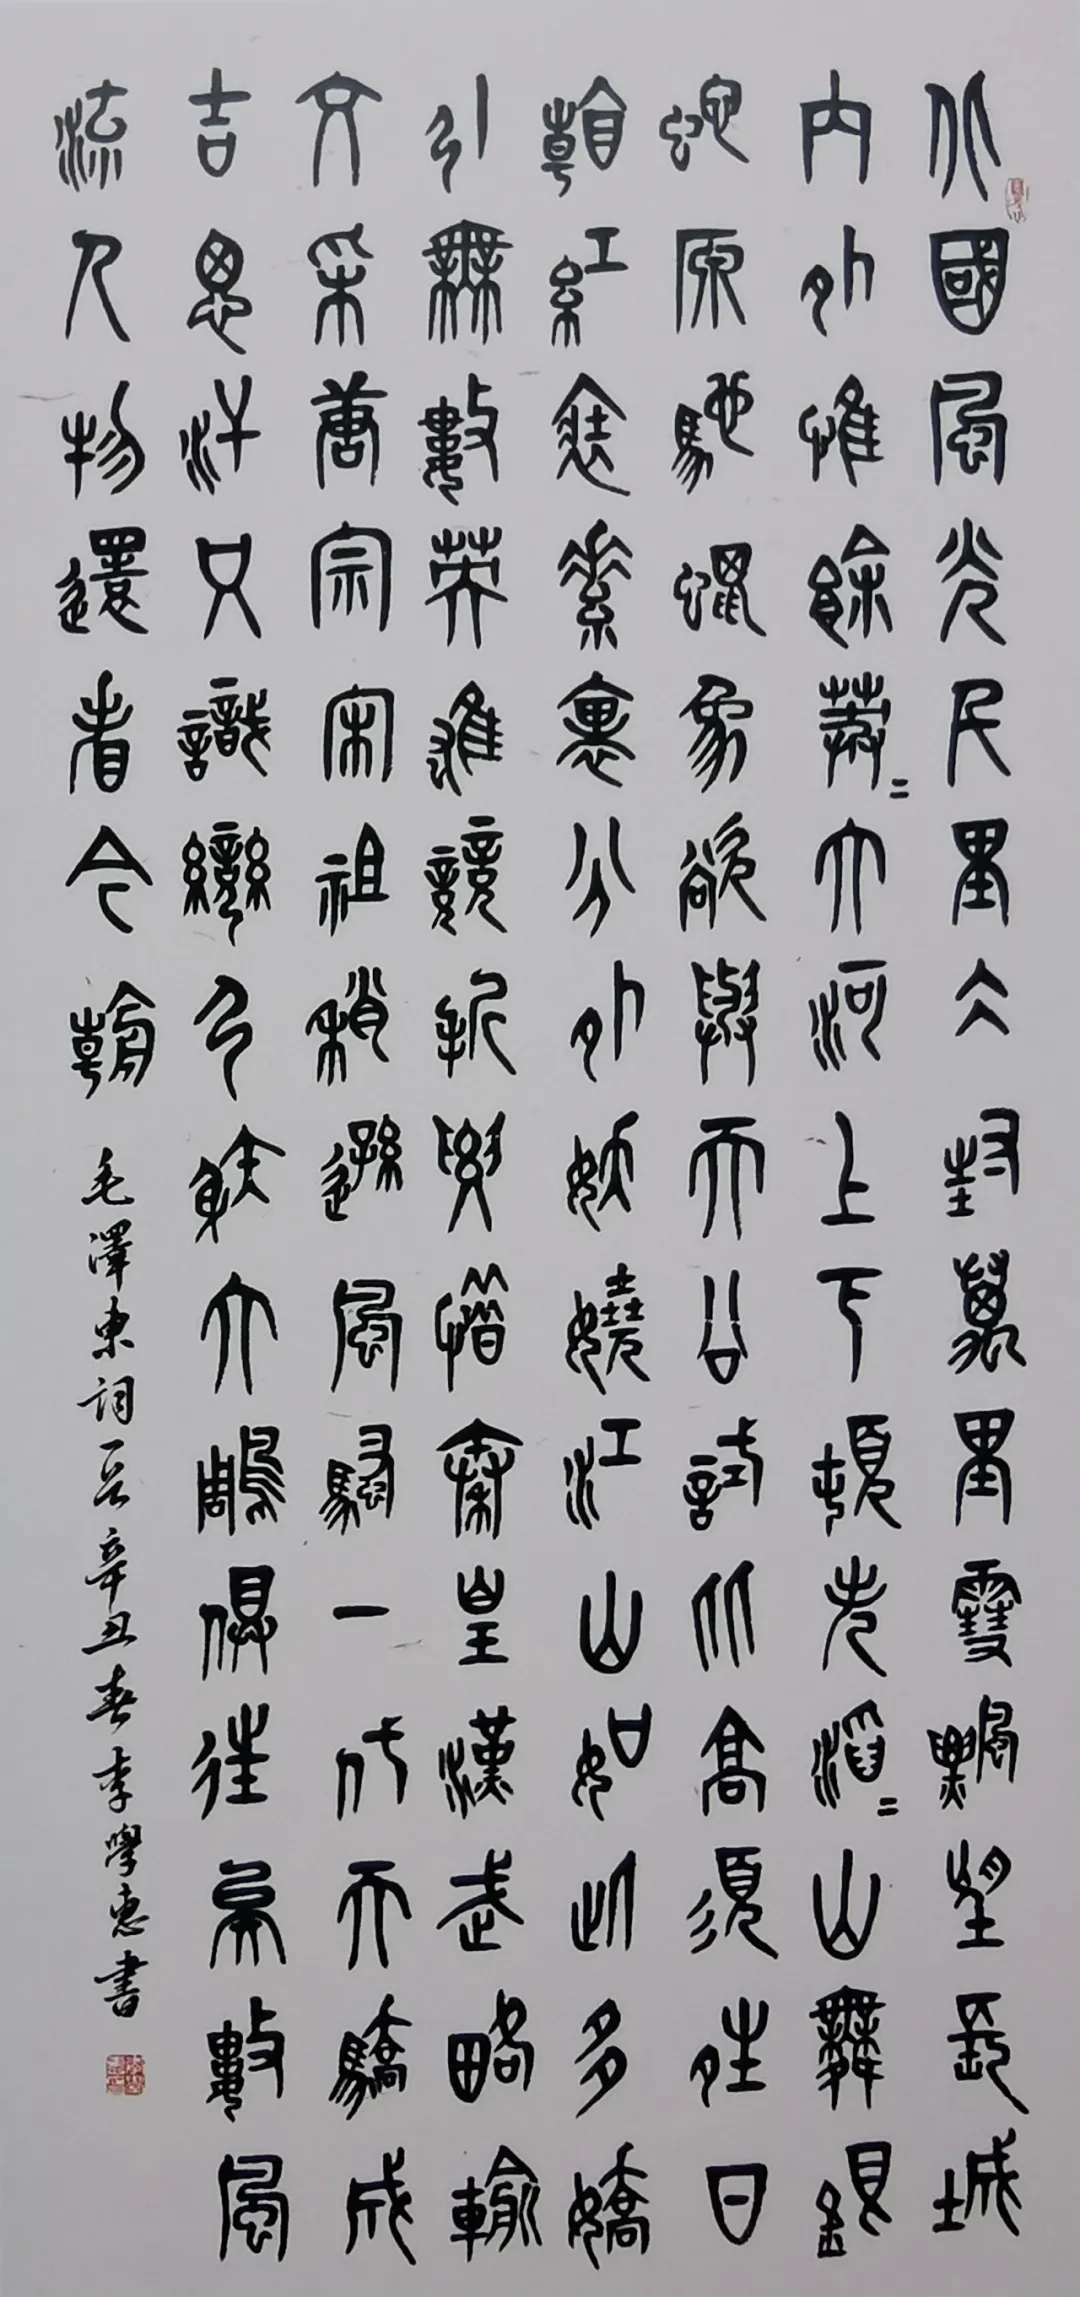 北國風光千里冰封萬里雪飄望長城
内外惟餘莽々大河上下頓失滔々山舞銀
蛇原馳蠟象欲與天公試比高須晴日
看紅裝素裹分外妖嬈江山如此多嬌
引無數英雄競折腰惜秦皇漢武略輸
文采唐宗宋祖稍遜風騷一代天驕成
吉思汗只識彎弓射大雕俱往矣數風
流人物還看今朝
毛澤東詞一首辛丑春李學惠書